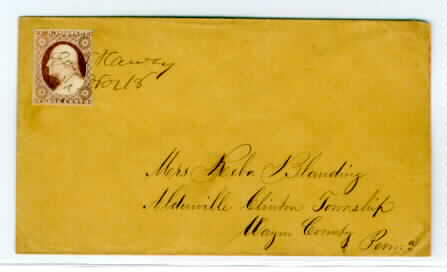 Hawley
Oct 18
THREE CENTS
Mrs Reba Blanding
Aldenville Clinton Township
Wayne County
Penn.